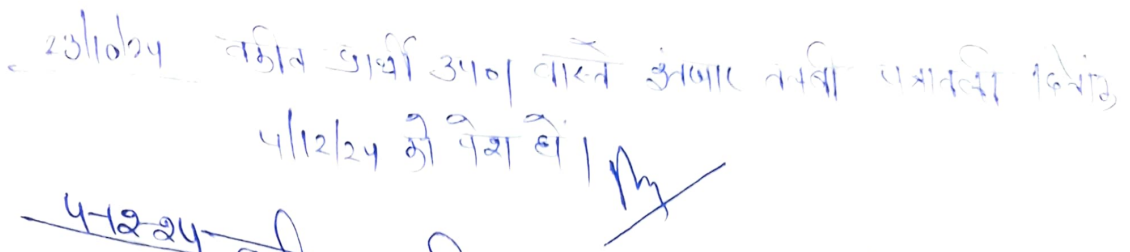 23/10/24 वकील प्रार्थी उप० वास्ते इंतजार तलबी पत्रावली दिनांक
4/12/24 को पेश हो।
4-12-24